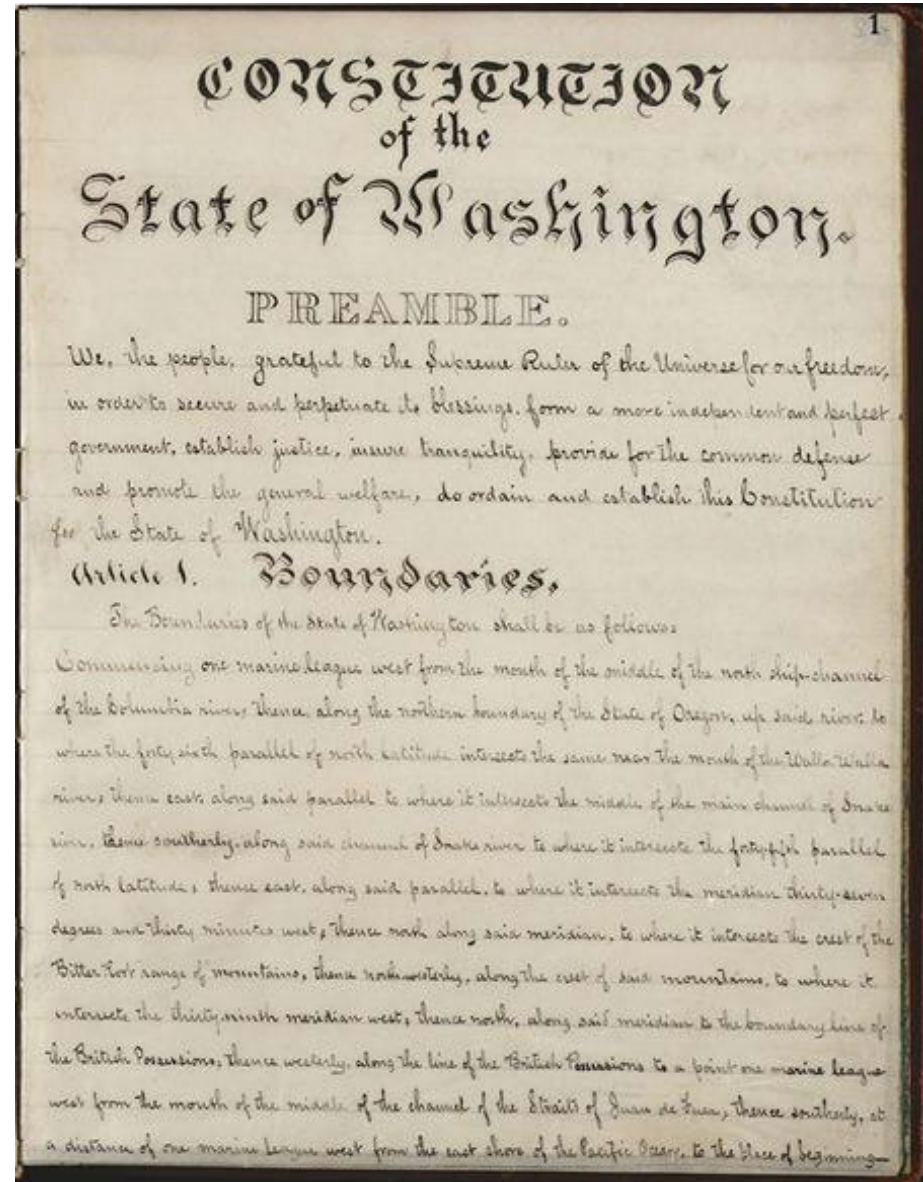 1
CONSTITUTION
of the
State of Washington.
PREAMBLE.
We, the people, grateful to the Supreme Ruler of the Universe for our freedom,
in order to secure and perpetuate its blessings, form a more independent and perfect
government, establish justice, insure tranquility, provide for the common defense
and promote the general welfare, do ordain and establish this Constitution
for the State of Washington.
Article 1. Boundaries.
The Boundaries of the State of Washington shall be as follows:
Commencing one marine league west from the mouth of the middle of the north ship-channel
of the Columbia river, thence, along the northern boundary of the State of Oregon, up said river, to
where the forty sixth parallel of north latitude intersects the same near the mouth of the Walla Walla
river, thence east, along said parallel to where it intersects the middle of the main channel of Snake
river, thence southerly, along said channel of Snake river to where it intersects the forty-fifth parallel
of north latitude, thence east, along said parallel, to where it intersects the meridian thirty-seven
degrees and thirty minutes west, thence north along said meridian, to where it intersects the crest of the
Bitter Root range of mountains, thence northwesterly, along the crest of said mountains, to where it
intersects the thirty-ninth meridian west, thence north, along said meridian to the boundary line of
the British Possessions, thence westerly, along the line of the British Possessions to a point one marine league
west from the mouth of the middle of the channel of the Straits of Juan de Fuca, thence southerly, at
a distance of one marine league west from the east shore of the Pacific Ocean, to the place of beginning—